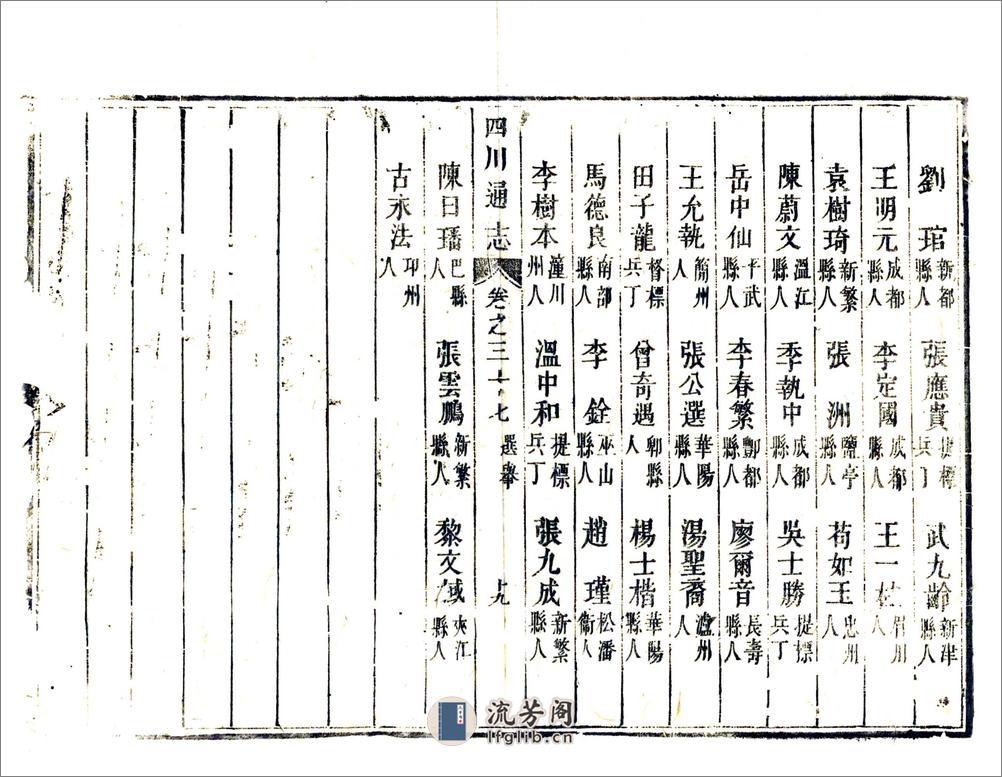 劉琯 新都縣人 張應貴 提標兵丁 武九齡 新津縣人
王明元 成都縣人 李定國 成都縣人 王一 眉州人
袁樹琦 新繁縣人 張洲 鹽亭縣人 苟如玉 忠州人
陳蔚文 溫江縣人 季執中 成都縣人 吳士勝 提標兵丁
岳中仙 平武縣人 李春繁 酆都縣人 廖爾音 長壽縣人
王允執 簡州人 張公選 華陽縣人 湯聖裔 瀘州人
田子龍 督標兵丁 曾奇遇 郫縣人 楊士楷 華陽縣人
馬德良 南部縣人 李銓 巫山縣人 趙瑾 松潘衞人
李樹本 潼川州人 溫中和 提標兵丁 張九成 新繁縣人
四川通志 卷之三十七 選舉 十九
陳日璠 巴縣人 張雲鵬 新繁縣人 黎文域 夾江縣人
古永法 邛州人
流芳阁
lfglib.cn